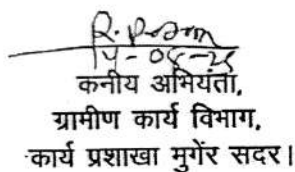 14-05-25
कनीय अभियंता,
ग्रामीण कार्य विभाग,
कार्य प्रशाखा मुगेंर सदर।